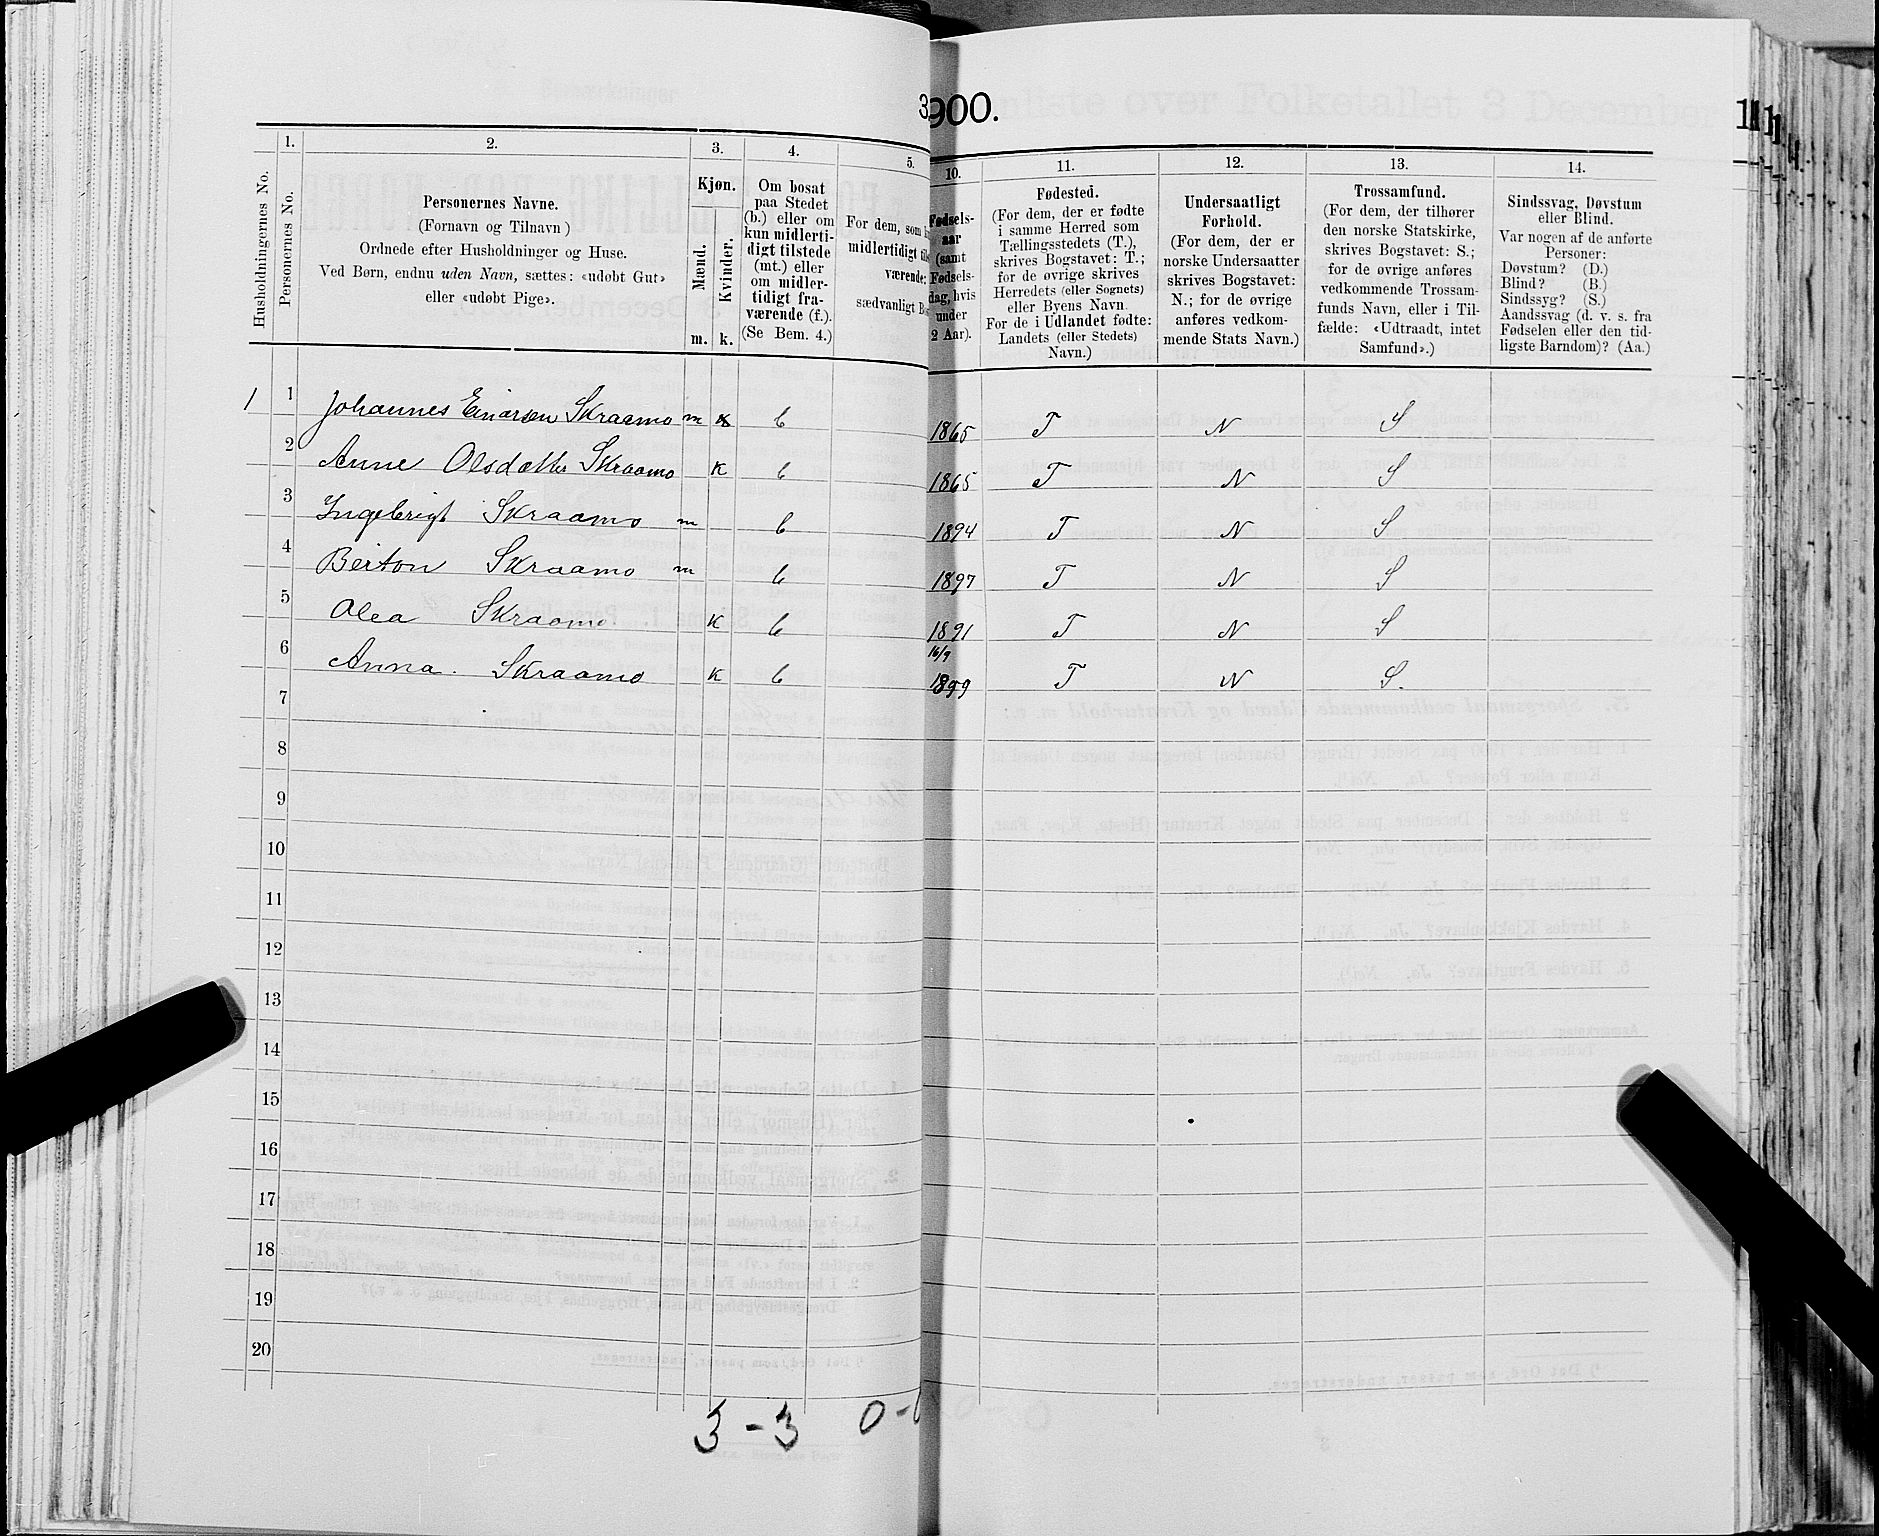 3
900.
1.
2.
3.
4.
5.
10.
11.
12.
13.
14.
Husholdningernes No.
Personernes No.
Personernes Navne.
(Fornavn og Tilnavn)
Ordnede efter Husholdninger og Huse.
Ved Børn, endnu uden Navn, sættes: «udøbt Gut»
eller «udøbt Pige».
Kjøn.
Mænd.
Kvinder.
m. k.
Om bosat
paa Stedet
(b.) eller om
kun midlerti-
digt tilstede
(mt.) eller
om midler-
tidigt fra-
værende (f.).
(Se Bem. 4.)
For dem, som
midlertidigt
værende:
sædvanligt
Fødsels-
aar
(samt
Fødsels-
dag, hvis
under
2 Aar).
Fødested.
(For dem, der er fødte
i samme Herred som
Tællingsstedets (T.),
skrives Bogstavet: T.;
for de øvrige skrives
Herredets (eller Sognets)
eller Byens Navn.
For de i Udlandet fødte:
Landets (eller Stedets)
Navn.)
Undersaatligt
Forhold.
(For dem, der er
norske Undersaatter
skrives Bogstavet:
N.; for de øvrige
anføres vedkom-
mende Stats Navn.)
Trossamfund.
(For dem, der tilhører
den norske Statskirke,
skrives Bogstavet: S.;
for de øvrige anføres
vedkommende Trossam-
funds Navn, eller i Til-
fælde: «Udtraadt, intet
Samfund».)
Sindssvag, Døvstum
eller Blind.
Var nogen af de anførte
Personer:
Døvstum? (D.)
Blind? (B.)
Sindssyg? (S.)
Aandssvag (d. v. s. fra
Fødselen eller den tid-
ligste Barndom)? (Aa.)
1 1 Johannes Einarsen Skraamo m b 1865 T N S
2 Anne Olsdatter Skraamo k b 1865 T N S
3 Ingebrigt Skraamo m b 1894 T N S
4 Beiton Skraamo m b 1897 T N S
5 Olea Skraamo k b 1891 T N S
6 Anna. Skraamo k b 16/9 1899 T N S.
7
8
9
10
11
12
13
14
15
16
17
18
19
20
3 - 3 0 -